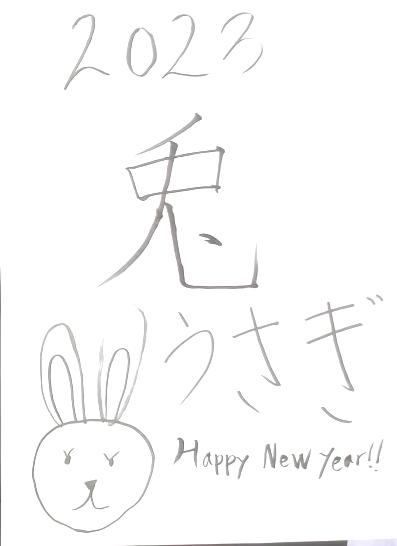 2023
兎
うさぎ
Happy New Year!!